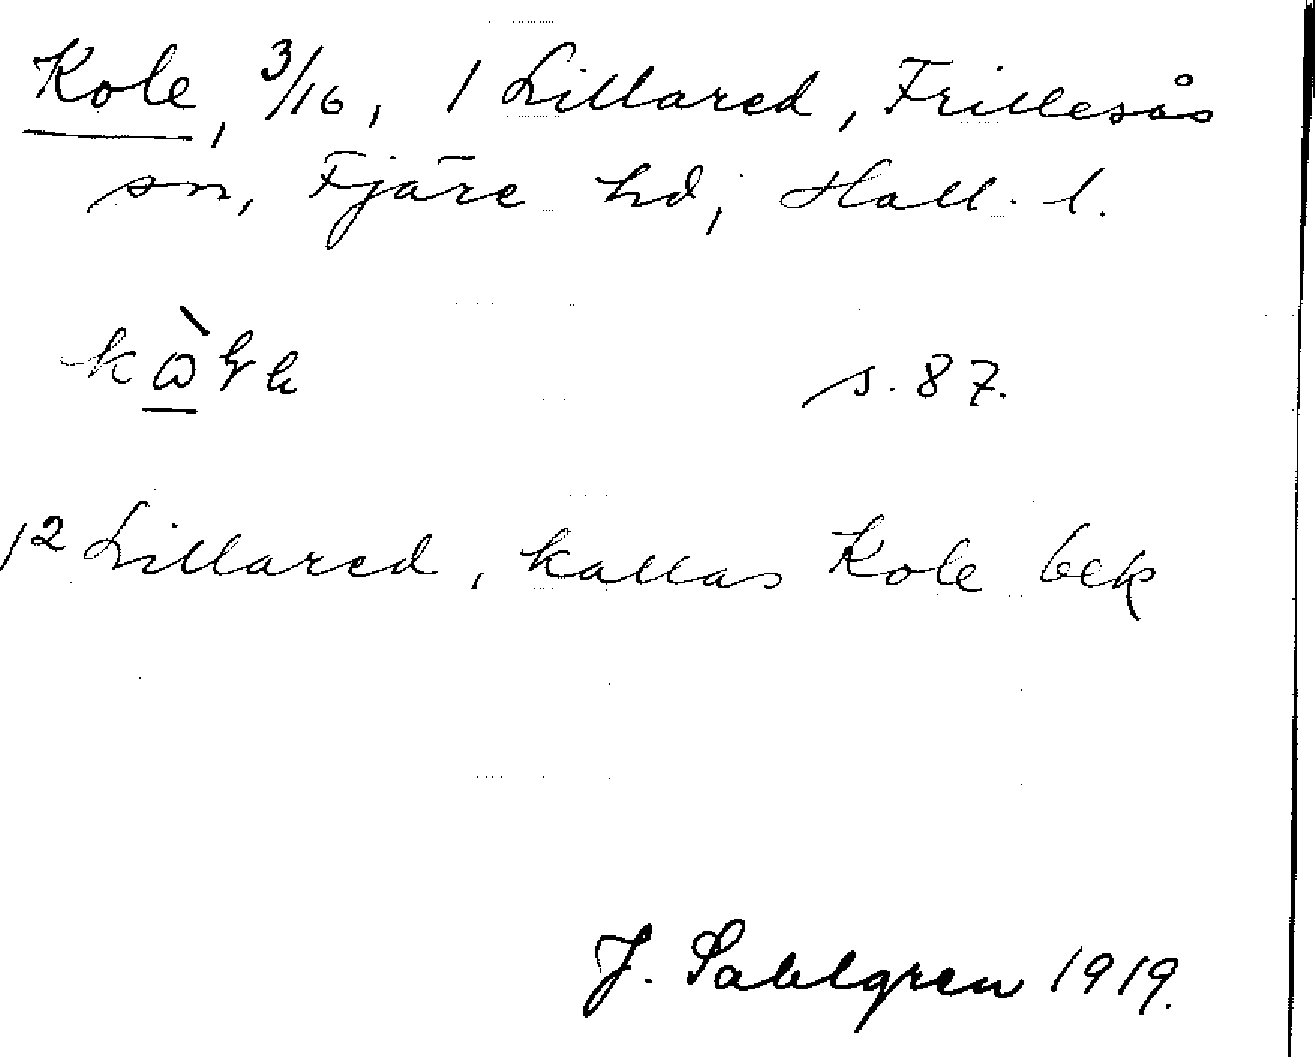 Kole, 3/16, 1 Lillared, Frillesås
sn, Fjäre hd, Hall. l.
s. 87.
12 Lillared, kallas Kole bek
J. Sahlgren 1919.